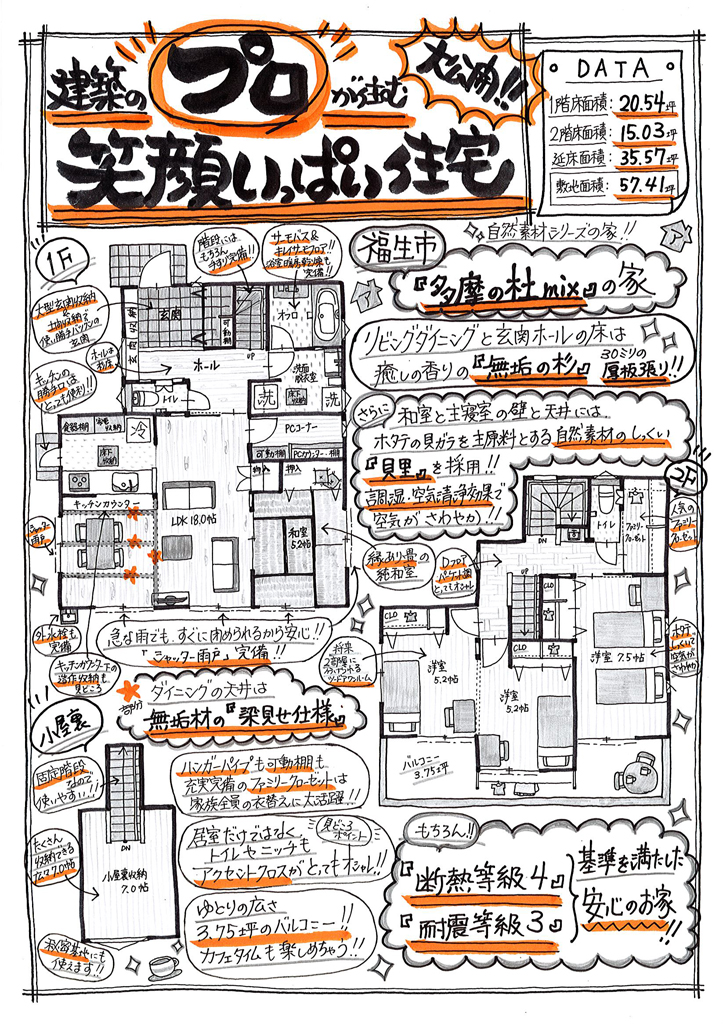 建築のプロが住む
大公開!!
笑顔いっぱい住宅
DATA
1階床面積: 20.54坪
2階床面積: 15.03坪
延床面積: 35.57坪
敷地面積: 57.41坪
自然素材シリーズの家!!
福生市
『多摩の杜mix』の家
リビングダイニングと玄関ホールの床は
癒しの香りの『無垢の杉』30ミリの厚板張り!!
さらに 和室と主寝室の壁と天井には
ホタテの貝ガラを主原料とする自然素材のしっくい
『貝里』を採用!!
調湿・空気清浄効果で
空気がさわやか!!
1F
階段には
もちろん
手すり完備!!
サーモバス&
キレイサーモフロア!!
浴室暖房乾燥も
完備!!
大型玄関収納
&
土間収納で
使い勝手バツグンの
玄関
ホールは
キッチンの
勝手口は
とっても便利!!
玄関
可動棚
おフロ
ホール
UP
トイレ
洗面
脱衣室
床下
収納
洗
洗
食器棚
家電
収納
冷
床下
収納
PCコーナー
可動棚
PCカウンター・棚
押入
押入
キッチンカウンター
LDK 18.0帖
和室
5.2帖
シャッター
雨戸
縁あり畳の
純和室
外水栓も
完備
キッチンカウンター下の
造作収納も
見どころ
急な雨でも、すぐに閉められるから安心!!
「シャッター雨戸」完備!!
部分
ダイニングの天井は
無垢材の『梁見せ仕様』
2F
DN
トイレ
ファミリー
クローゼット
人気の
ファミリー
クローゼット
CLO
CLO
CLO
洋室
5.2帖
洋室
5.2帖
洋室 7.5帖
バルコニー
3.75坪
将来
2部屋に
わけられる
ツードアワンルーム
ホタテ
しっくいで
空気が
さわやか
小屋裏
固定階段
なので
使いやすい!!
DN
たくさん
収納できる
広さ7.0帖
小屋裏収納
7.0帖
秘密基地にも
使えます!!
ハンガーパイプも可動棚も
充実完備のファミリークローゼットは
家族全員の衣替えに大活躍!!
居室だけではなく、
トイレやニッチも
アクセントクロスがとってもオシャレ!!
見どころ
ポイント
ゆとりの広さ
3.75坪のバルコニー!!
カフェタイムも楽しめちゃう!!
もちろん!!
『断熱等級4』
『耐震等級3』
基準を満たした
安心のお家!!